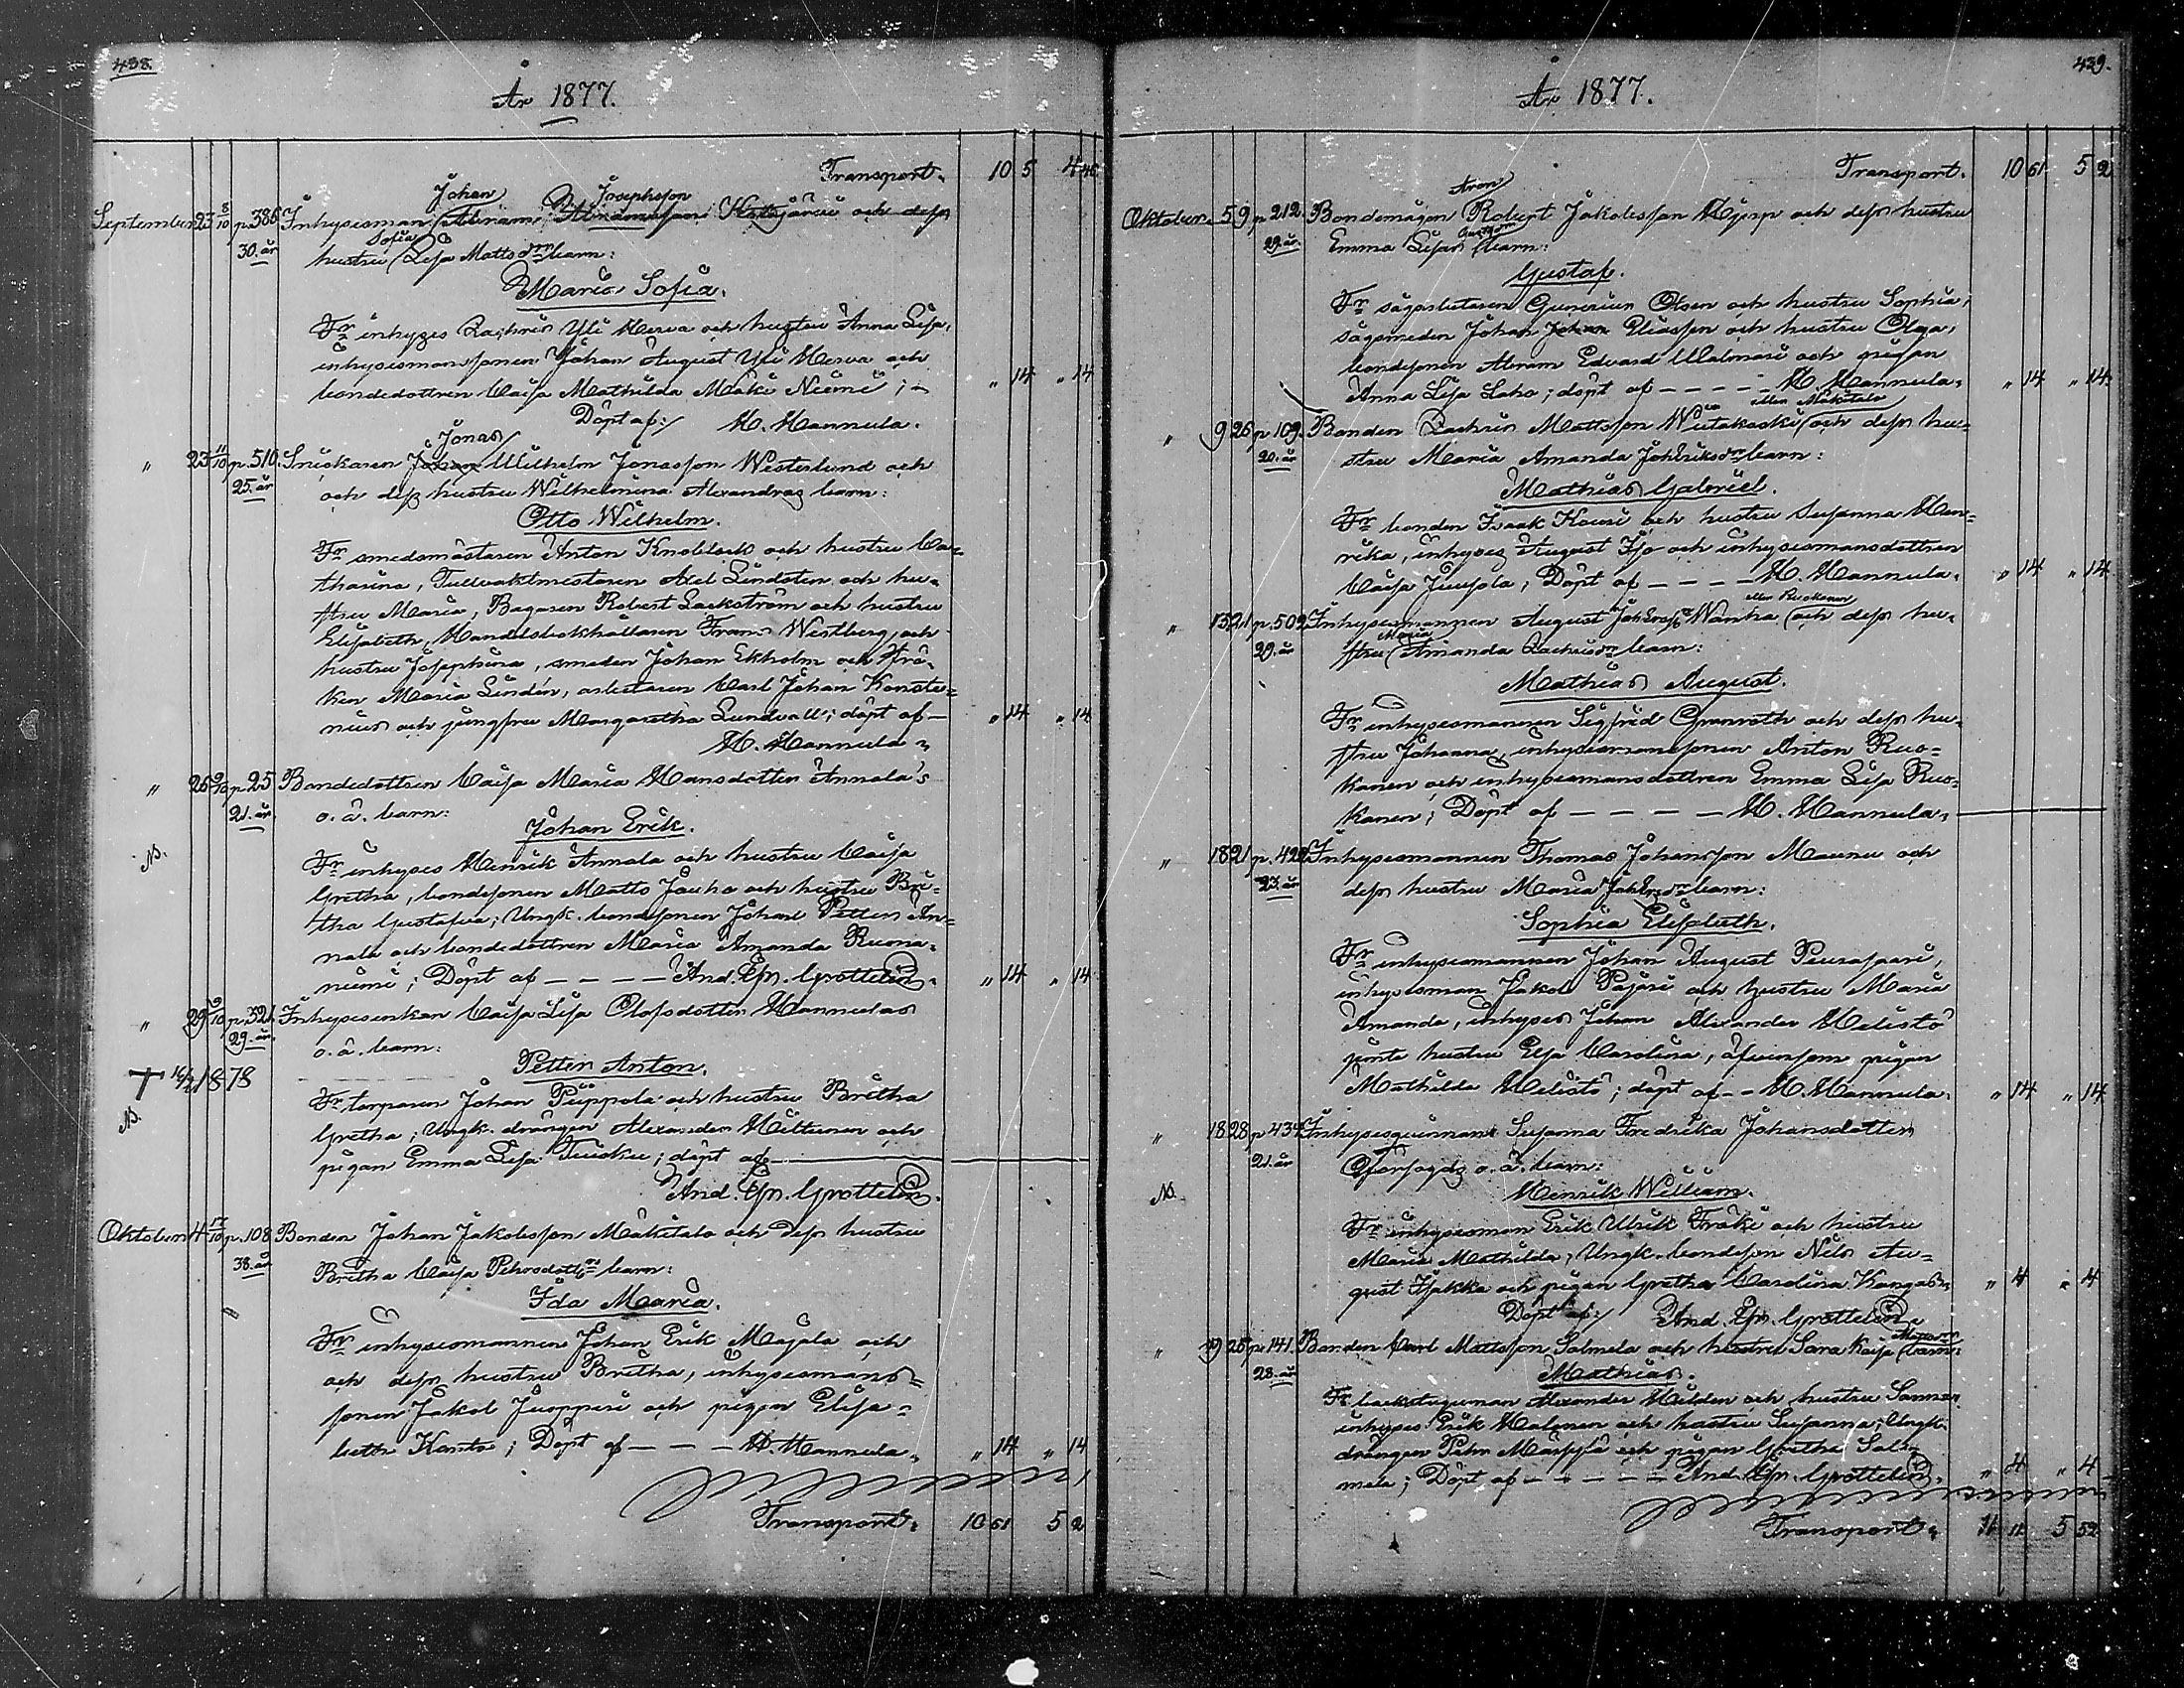 438.
År 1877.
Transport. 10 5 4 46
Johan Josephsson
September 23 8/10 p.386 Inhysesman Abram och dess
30. år Sofia
hustru Lisa Mattsdr barn:
Maria Sofia.
Fr inhyses Zachris Yli Herva och hustru Anna Lisa,
inhysesmanssonen Johan August Yli Herva och
bondedottren Caisa Mathilda Mäki Niemi;
" 14 " 14
Döpt af: H. Hannula.
Jonas
" 23 11/10 p.510. Snickaren Johan Wilhelm Jonasson Westerlund och
25. år och dess hustru Wilhelmina Alexandras barn:
Otto Wilhelm.
Fr smedsmästaren Anton Knoblock och hustru Ca=
tharina, Tullvaktmestaren Axel Lindsten och hu=
stru Maria, Bagaren Robert Lackström och hustru
Elisabeth, Handelsbokhållaren Frans Westberg och
hustru Josephina, smeden Johan Ekholm och frö=
ken Maria Lindén, arbetaren Carl Johan Konste=
nius och jungfru Margaretha Lundvall; döpt af — " 14 " 14
H. Hannula.
" 26 9/10 p.25 Bondedottren Caisa Maria Hansdotter Annala's
21. år o. ä. barn:
Johan Erik.
NB. Fr inhyses Henrik Annala och hustru Caisa
Gretha, bondesonen Matts Jauho och hustru Bri=
tha Gustafva; Ungk. bondesonen Johan Petter An=
nala och bondedottren Maria Amanda Ruona=
niemi; Döpt af — — — — And. Gr. Grottelin. " 14 " 14
" 29 9/10 p.321. Inhysesenkan Caisa Lisa Olofsdotter Hannulas
29. år. o. ä. barn:
Petter Anton.
† 16/2 1878
NB. Fr torparen Johan Piippola och hustru Britha
Gretha; Ungk. drängen Alexander Hiltunen och
pigan Emma Lisa Tuisku; döpt af
And. Gr. Grottelin.
Oktober 4 17/10 p.108 Bonden Johan Jakobsson Mäkitalo och dess hustru
38. år Britha Caisa Pehrsdottrs barn:
Ida Maria.
Fr inhysesmannen Johan Erik Majala och
och dess hustru Britha, inhysesmans=
sonen Jakob Juopperi och pigan Elisa=
beth Kanto; Döpt af — — — H. Hannula. " 14 " 14
Transport. 10 61 5 2
439.
År 1877.
Transport. 10 61 5 2
Aron
Oktober. 5 9 p.212. Bondemågen Robert Jakobsson och dess hustru
29. år. Emma Lisas barn:
Gustaf.
Fr sågarbetaren Gunerius Olsen och hustru Sophia,
sågsmeden Johan Johan Eliasson och hustru Olga,
bondesonen Abram Edvard Malmari och pigan
Anna Lisa Laho; döpt af — — — — H. Hannula. " 14 " 14
eller Mäkitalo
" 9 26 p.109. Bonden Zachris Mattsson Wiitakoski och dess hu=
20. år stru Maria Amanda JohEriksdrs barn:
Mathias Gabriel.
Fr bonden Isaak Kouri och hustru Susanna Hen=
rika, inhyses August Iso och inhysesmansdottren
Caisa Juusola; Döpt af — — — — H. Hannula. " 14 " 14
eller Ruokanen
" 15 21 p.509. Inhysesmannen August Wanha och dess hu=
Maria
29. år stru Amanda Zachrisdrs barn:
Mathias August.
Fr inhysesmannen Sigfrid Granroth och dess hu=
stru Johanna, inhysesmanssonen Anton Ruo=
kanen och inhysesmansdottren Emma Lisa Ruo=
kanen; Döpt af — — — — H. Hannula.
" 18 21 p.422 Inhysesmannen Thomas Johansson Maunu och
23. år dess hustru Maria barn:
Sophia Elisabeth.
Fr inhysesmannen Johan August Peurasaari,
inhysesman Jakob Pajari och hustru Maria
Amanda, inhyses Johan Alexander Helistö
jemte hustru Elsa Carolina, äfvensom pigan
Mathilda Helistö; döpt af — — H. Hannula. " 14 " 14
" 18 28 p 434 Inhysesqvinnans Susanna Fredrika Johansdotter
21. år o. ä. barn:
Henrik William.
NB. Fr inhysesman Erik Ulrik Fräki och hustru
Maria Mathilda, Ungk. bondeson Nils Au=
gust Isakka och pigan Gretha Carolina Kangas " 4 " 4
Döpt af: And. Gr. Grottelin.
" 19 28 p.141. Bonden Carl Mattsson Salmela och hustru Sara Kaisa barn:
28. år
Mathias.
Fr backstuguman Alexander Hilden och hustru Sanna
inhyses Erik Halonen och hustru Susanna; Ungk.
drängen Pehr och pigan Gretha Sal=
mela; Döpt af — — — — And. Gr. Grottelin. " 4 " 4
Transport. 11 11 5 52